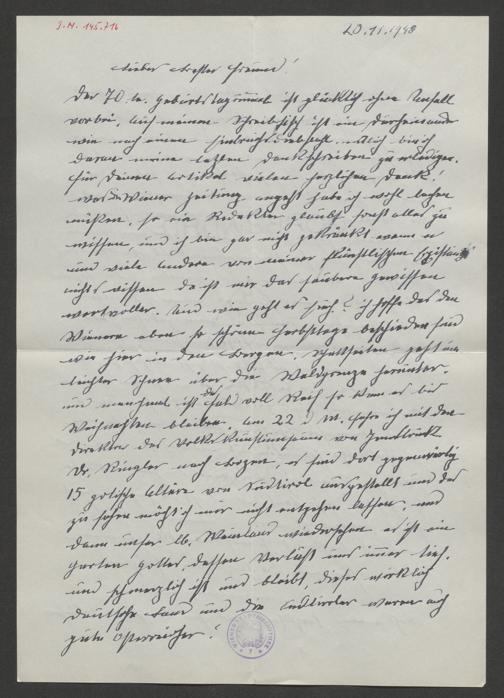 J.N. 145.716
20.11.1948
Lieber bester Freund!
Der 70 te. Geburtstagrummel ist glücklich ohne Unfall
vorbei, auf meinem Schreibtisch ist ein Durcheinander
wie nach einem Einbruchsdiebstahl. endlich bin ich
daran meine letzten Dankschreiben zu erledigen.
für Deinen Artikel vielen herzlichen Dank!
was die Wiener Zeitung angeht habe ich wohl lachen
müssen, so ein Redakteur glaubt sonst alles zu
wissen, und ich bin gar nicht gekränkt wenn er
und viele andere von meiner künstlischen Existenz
nichts wissen da ist mir das saubere Gewissen
wertvoller. Und wie geht es sich? ich hoffe das den
Wienern eben so schöne Herbsttage beschieden sind
wie hier in den Bergen. schattseiten geht ein
leichter Schnee über die Waldgrenze herunter.
und manchmal ist das voll Reif so kann es bis
Weihnachten bleiben. am 22 d M. fahre ich mit dem
Direktor des Volkskunstmuseums von Innsbruck
Dr. Ringler nach Bozen, es sind dort gegenwärtig
15 gotische Altäre von Südtirol ausgestellt und das
zu sehen möcht ich mir nicht entgehen lassen. und
dann unser lb. Weinland wiedersehen es ist ein
garten gottes, dessen Verlust uns immer tief.
und schmerzlich ist und bleibt, dieses wirklich
deutsche Land und die Südtiroler waren auch
gute Österreicher!